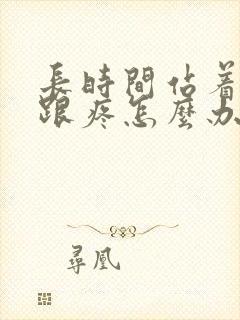 長時間站着
跟疼怎麼办
尋凰